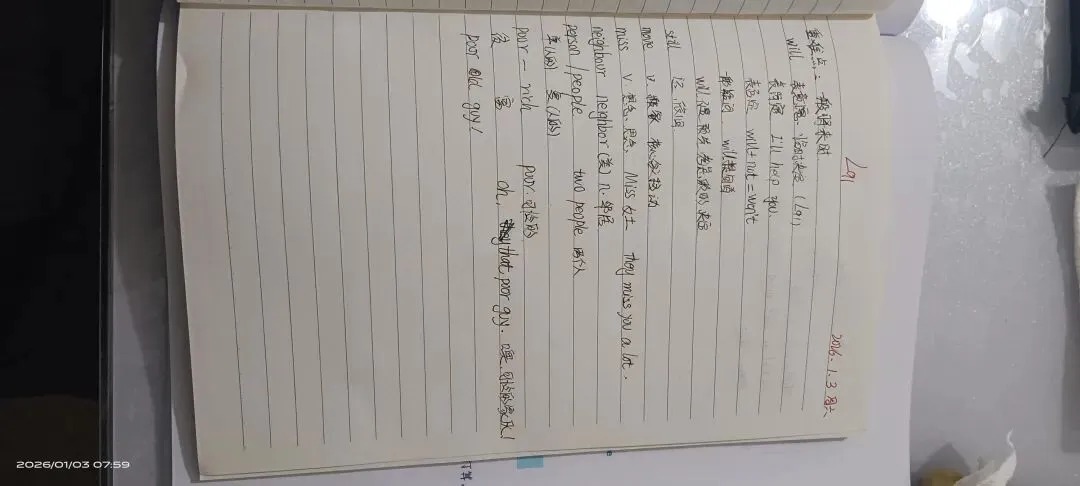 L91
2026.1.3 周六
重难点：一般将来时
will 表意愿、临时决定 (L91)
表意愿 I'll help you.
表否定 will+not=won't
一般疑问 will提句首
will 没
still 还 依旧
move v. 搬家 移动
miss v. 想念、思念、Miss 女士 they miss you a lot.
neighbour neighbor (美) n. 邻居
person / people two people 两个人
单(人称) 复(人称)
poor - rich poor. 可怜的
富 oh, that poor guy. 可怜的家伙!
poor old guy!
2026/01/03 07:59